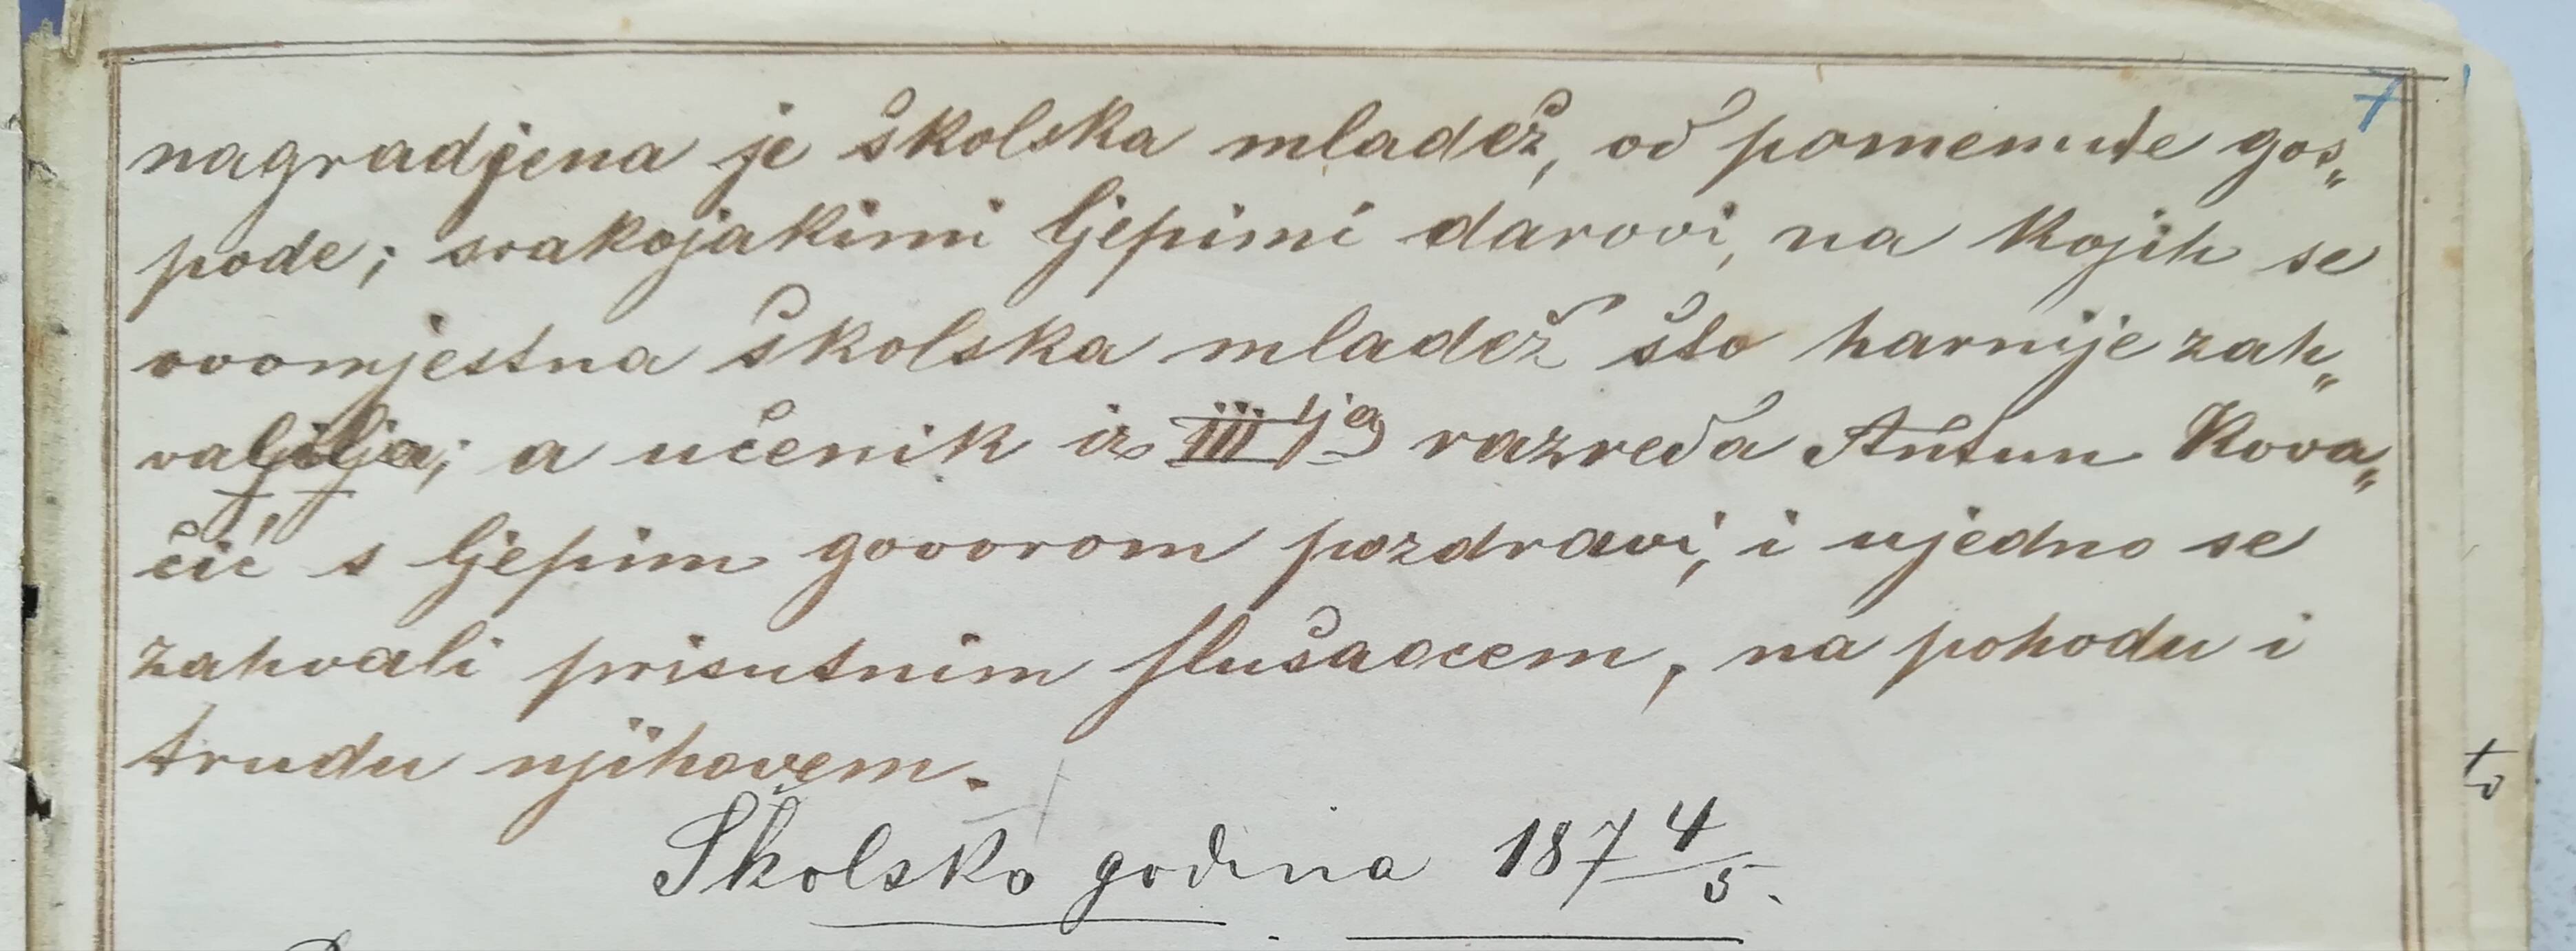 7
nagradjena je školska mladež, od pomenute gos„
pode; svakojakimi ljepimi darovi, na kojih se
ovomjestna školska mladež što harnije zah„
valjilja; a učenik iz III tja razreda Antun Kova„
čić s ljepim govorom pozdravi, i ujedno se
zahvali prisutnim slušaocem, na pohodu i
trudu njihovem.
Školsko godina 187 4/5.